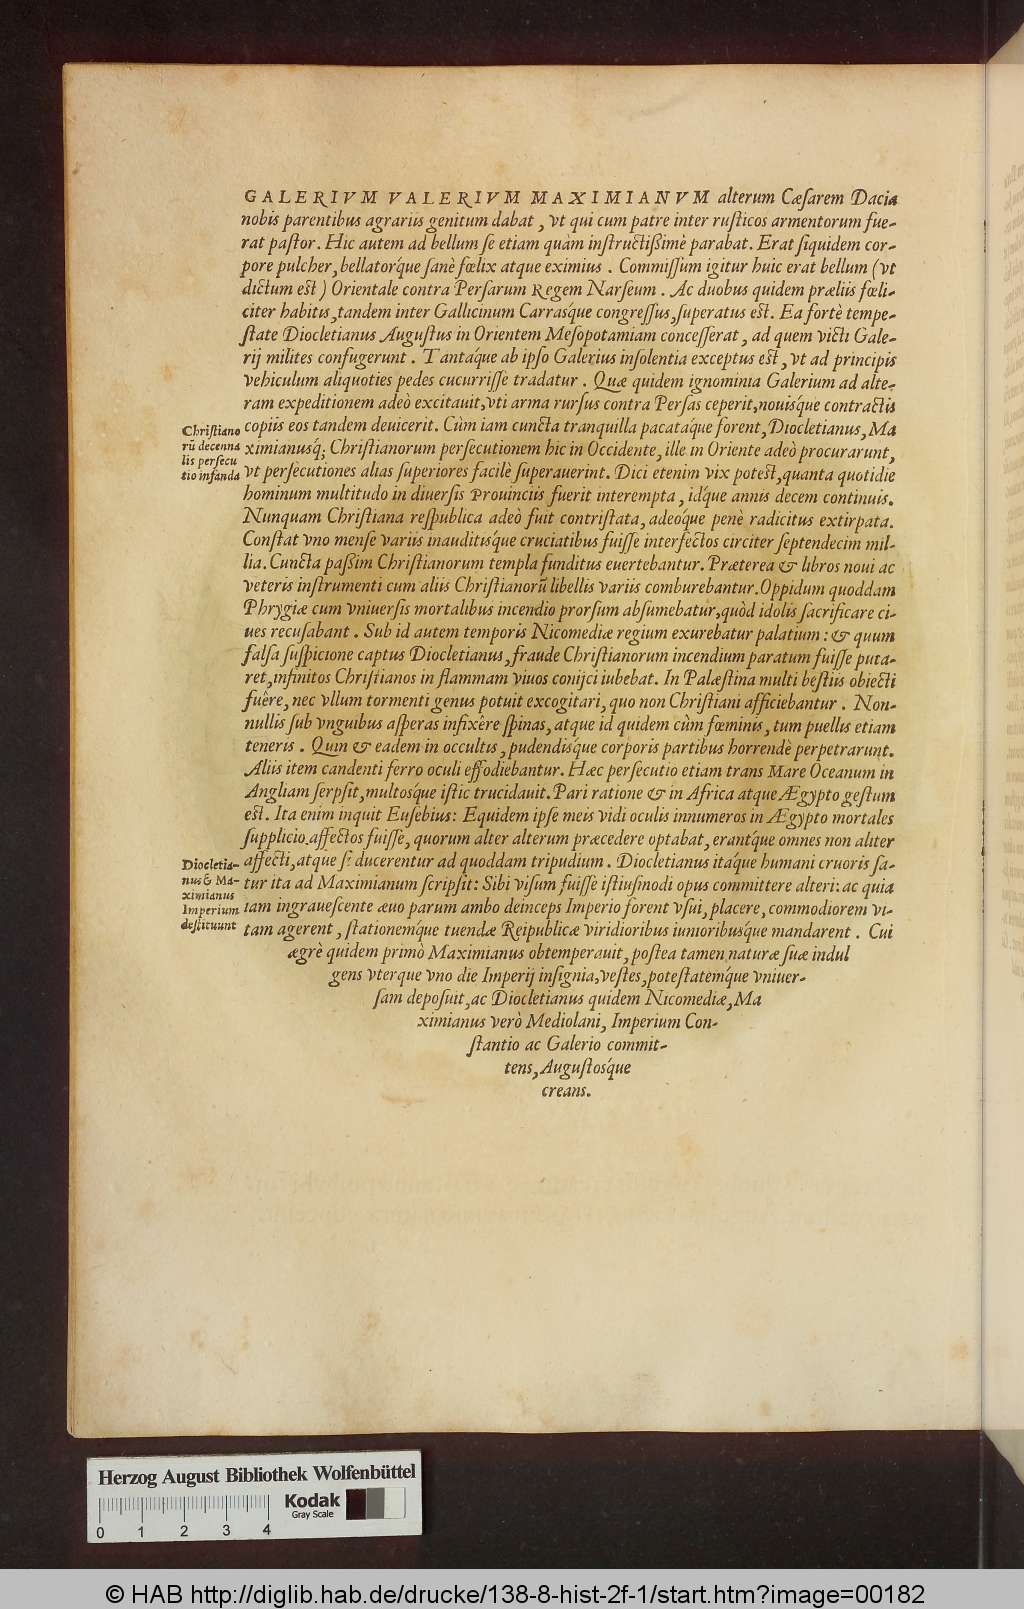 GALERIVM VALERIVM MAXIMIANVM alterum Cæſarem Dacia
nobis parentibus agrariis genitum dabat, vt qui cum patre inter ruſticos armentorum fue-
rat paſtor. Hic autem ad bellum ſe etiam quàm inſtructißimè parabat. Erat ſiquidem cor-
pore pulcher, bellatorq́ue ſanè fœlix atque eximius. Commiſſum igitur huic erat bellum (vt
dictum eſt) Orientale contra Perſarum Regem Narſeum. Ac duobus quidem præliis fœli-
citer habitis, tandem inter Gallicinum Carraſq́ue congreſſus, ſuperatus eſt. Ea fortè tempe-
ſtate Diocletianus Auguſtus in Orientem Meſopotamiam conceſſerat, ad quem victi Gale-
rij milites confugerunt. Tantaq́ue ab ipſo Galerius inſolentia exceptus eſt, vt ad principis
vehiculum aliquoties pedes cucurriſſe tradatur. Quæ quidem ignominia Galerium ad alte-
ram expeditionem adeò excitauit, vti arma rurſus contra Perſas ceperit, nouiſq́ue contractis
copiis eos tandem deuicerit. Cùm iam cuncta tranquilla pacataq́ue forent, Diocletianus, Ma
ximianusq́; Chriſtianorum perſecutionem hic in Occidente, ille in Oriente adeò procurarunt,
vt perſecutiones alias ſuperiores facilè ſuperauerint. Dici etenim vix poteſt, quanta quotidie
hominum multitudo in diuerſis Prouinciis fuerit interempta, idq́ue annis decem continuis.
Chriſtiano
rū decenna
lis perſecu
tio infanda
Nunquam Chriſtiana reſpublica adeò fuit contriſtata, adeoq́ue penè radicitus extirpata.
Conſtat vno menſe variis inauditiſq́ue cruciatibus fuiſſe interfectos circiter ſeptendecim mil-
lia. Cuncta paſſim Chriſtianorum templa funditus euertebantur. Præterea & libros noui ac
veteris inſtrumenti cum aliis Chriſtianorū libellis variis comburebantur. Oppidum quoddam
Phrygiæ cum vniuerſis mortalibus incendio prorſum abſumebatur, quòd idolis ſacrificare ci-
ues recuſabant. Sub id autem temporis Nicomediæ regium exurebatur palatium: & quum
falſa ſuſpicione captus Diocletianus, fraude Chriſtianorum incendium paratum fuiſſe puta-
ret, infinitos Chriſtianos in flammam viuos conijci iubebat. In Palæſtina multi beſtiis obiecti
fuêre, nec vllum tormenti genus potuit excogitari, quo non Chriſtiani afficiebantur. Non-
nullis ſub vnguibus aſperas infixêre ſpinas, atque id quidem cùm fœminis, tum puellis etiam
teneris. Quin & eadem in occultis, pudendiſq́ue corporis partibus horrendè perpetrarunt.
Aliis item candenti ferro oculi effodiebantur. Hæc perſecutio etiam trans Mare Oceanum in
Angliam ſerpſit, multosque iſtic trucidauit. Pari ratione & in Africa atque Ægypto geſtum
eſt. Ita enim inquit Euſebius: Equidem ipſe meis vidi oculis innumeros in Ægypto mortales
ſupplicio affectos fuiſſe, quorum alter alterum præcedere optabat, erantq́ue omnes non aliter
affecti, atque ſi ducerentur ad quoddam tripudium. Diocletianus itaq́ue humani cruoris ſa-
tur ita ad Maximianum ſcripſit: Sibi viſum fuiſſe iſtiuſmodi opus committere alteri: ac quia
iam ingraueſcente æuo parum ambo deinceps Imperio forent vſui, placere, commodiorem vi-
tam agerent, ſtationemq́ue tuendæ Reipublicæ viridioribus iunioribuſq́ue mandarent. Cui
Diocletia-
nus & Ma-
ximianus
Imperium
deſtituunt
ægrè quidem primò Maximianus obtemperauit, poſtea tamen naturæ ſuæ indul
gens vterque vno die Imperij inſignia, veſtes, poteſtatemq́ue vniuer-
ſam depoſuit, ac Diocletianus quidem Nicomediæ, Ma
ximianus verò Mediolani, Imperium Con-
ſtantio ac Galerio commit-
tens, Auguſtoſq́ue
creans.
Herzog August Bibliothek Wolfenbüttel
0 1 2 3 4
Kodak
Gray Scale
© HAB http://diglib.hab.de/drucke/138-8-hist-2f-1/start.htm?image=00182